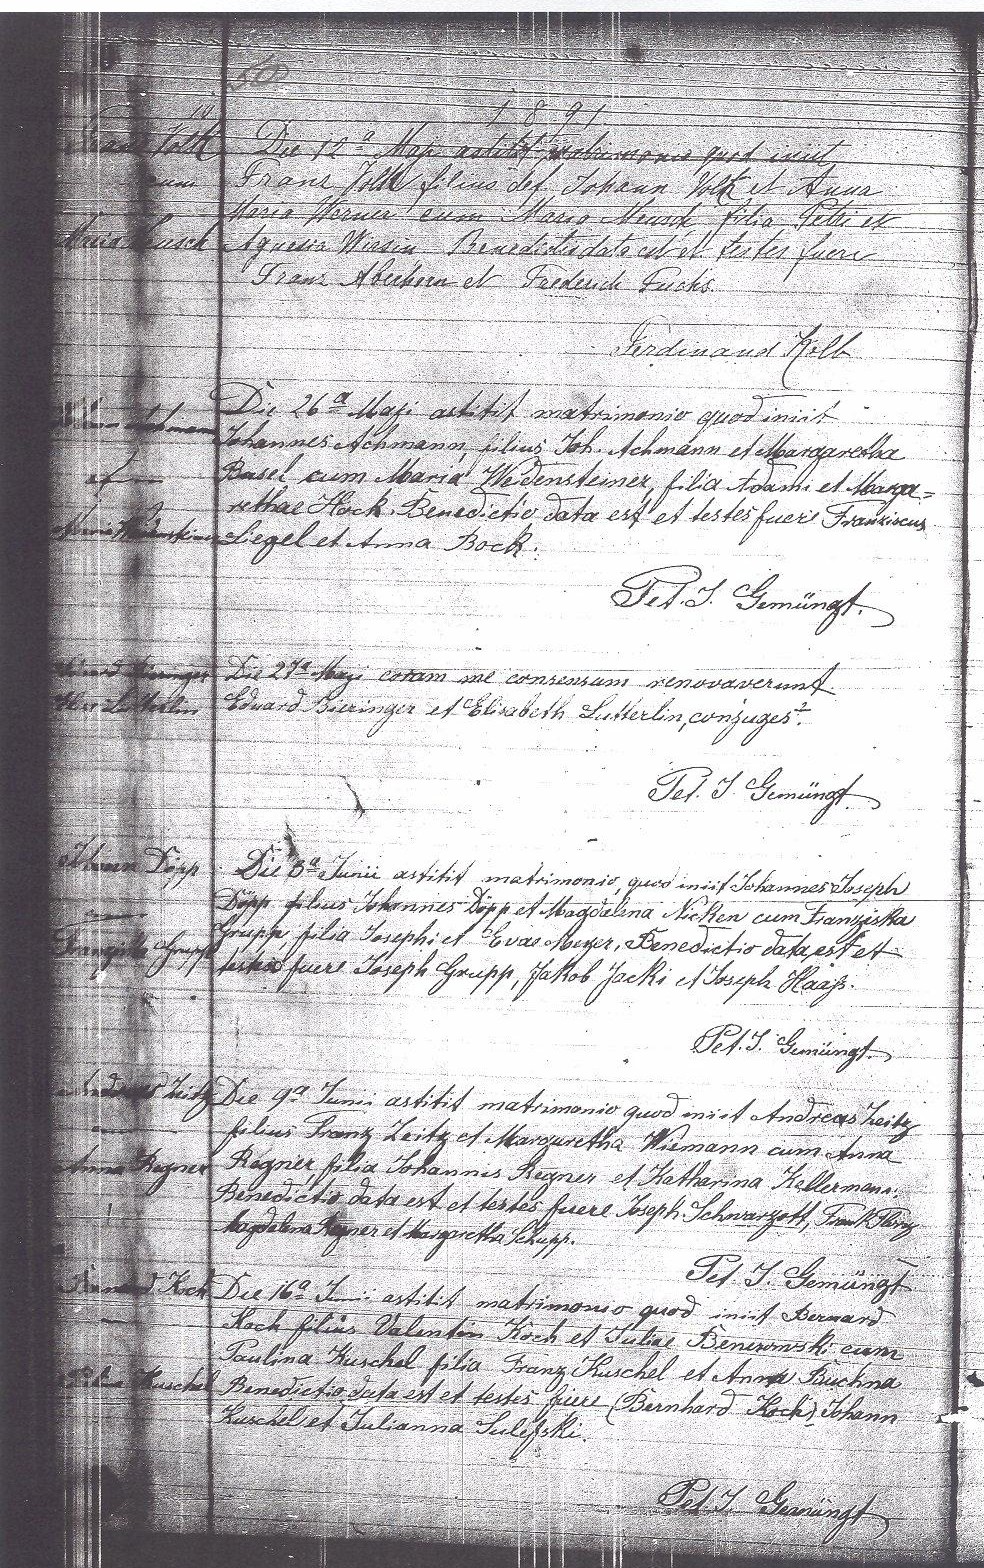 50
1891
Volk Die 12a Maji astitit matrimonio quod iniit
cum Franz Volk filius def. Johann Volk et Anna
Maria Werner cum Maria filia Petri et
Agnesia Benedictio data est et testes fuere
Franz et Frederich Fuchs.
Ferdinand Kolb
Die 26a Maji astitit matrimonio quod iniit
Johannes Achmann, filius Joh. Achmann et Margaretha
et Basel cum Maria Weidensteiner, filia Adami et Marga=
rethae Hock. Benedictio data est et testes fuere Franziscus
Siegel et Anna Bock.
Pet. J. Gemüngt.
Die 27a Maji coram me consensum renovaverunt
Eduard Bieringer et Elisabeth Lutterlin, conjuges.
Pet. J. Gemüngt.
Döpp Die 8a Junii astitit matrimonio, quod iniit Johannes Joseph
Döpp filius Johannes Döpp et Magdalena Nicken cum Franziska
Franziska Grupp Grupp, filia Josephi et Evae Meyer, Benedictio data est et
testes fuere Joseph Grupp, Jakob Jacki et Joseph Haaß.
Pet. J. Gemüngt.
Andreas Zeitz Die 9a Junii astitit matrimonio quod iniit Andreas Zeitz
filius Franz Zeitz et Margaretha Wiemann cum Anna
Anna Regner Regner, filia Johannis Regner et Katharina Kellermann.
Benedictio data est et testes fuere Joseph Schwarzott, Frank
Magdalena Regner et Margaretha Schupp.
Pet. J. Gemüngt
Bernard Koch Die 16a Junii astitit matrimonio quod iniit Bernard
Koch filius Valentin Koch et Juliae Benewski cum
Paulina Kuschel filia Franz Kuschel et Anna Buchna
Kuschel Benedictio data est et testes fuere (Bernhard Koch) Johann
Kuschel et Julianna Sulefski.
Pet. J. Gemüngt